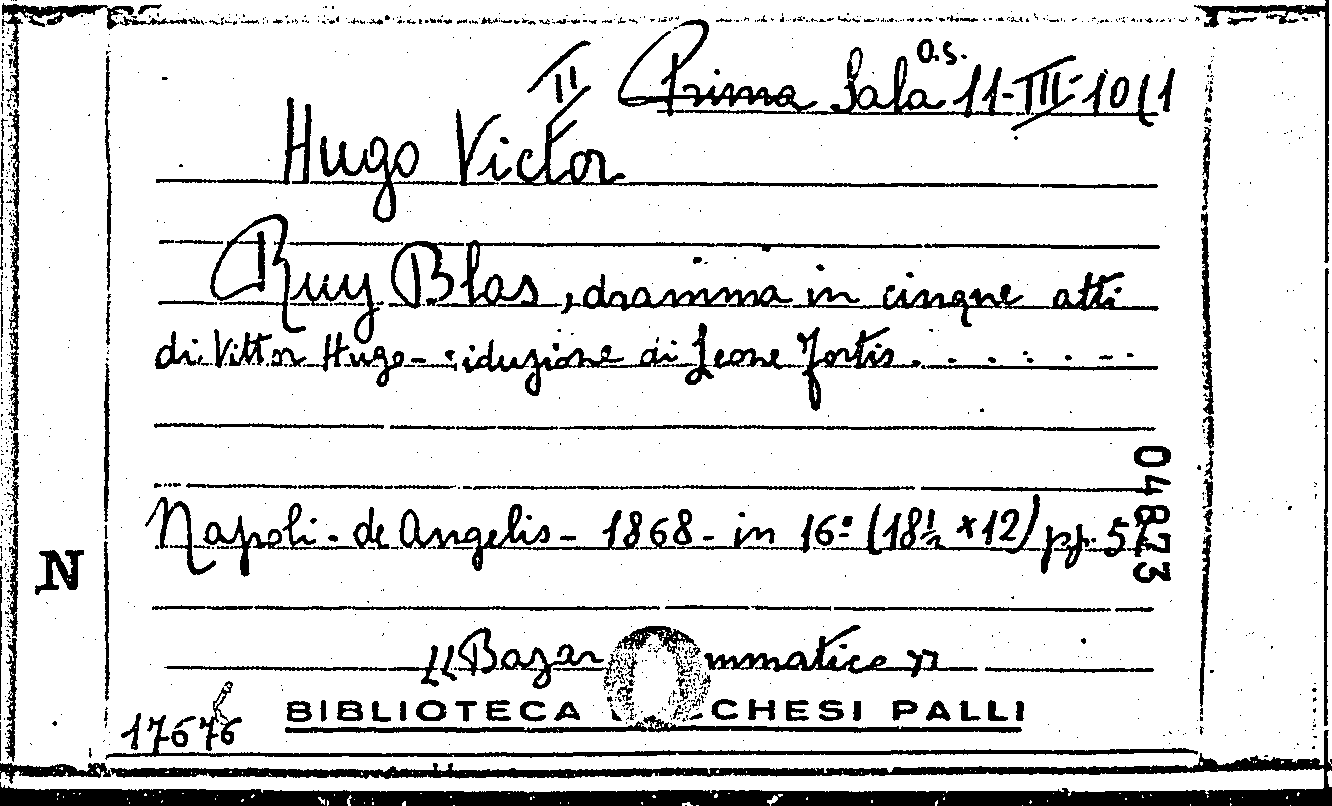 O.S.
II Prima Sala 11-III-10(1
Hugo Victor
Ruy Blas, dramma in cinque atti
di Vittor Hugo - riduzione di Leone Fortis . . . . . . .
Napoli - de Angelis - 1868 - in 16º (18½ x 12) pp.
04873
N
"Bazar mmatico"
17676
BIBLIOTECA CHESI PALLI